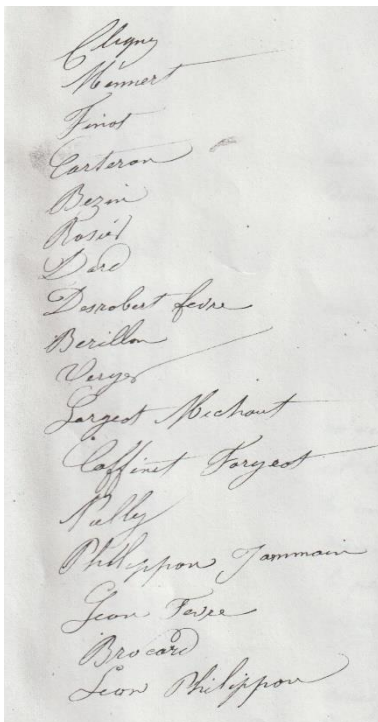 Cligny
Mennert
Finot
Carteron
Bezin
Rosier
Dard
Desrobert fevre
Berillon
Verger
Largeot Michaut
Coffinet Forgeot
Nully
Philippon Jammain
Leon Fevre
Brocard
Leon Philippon